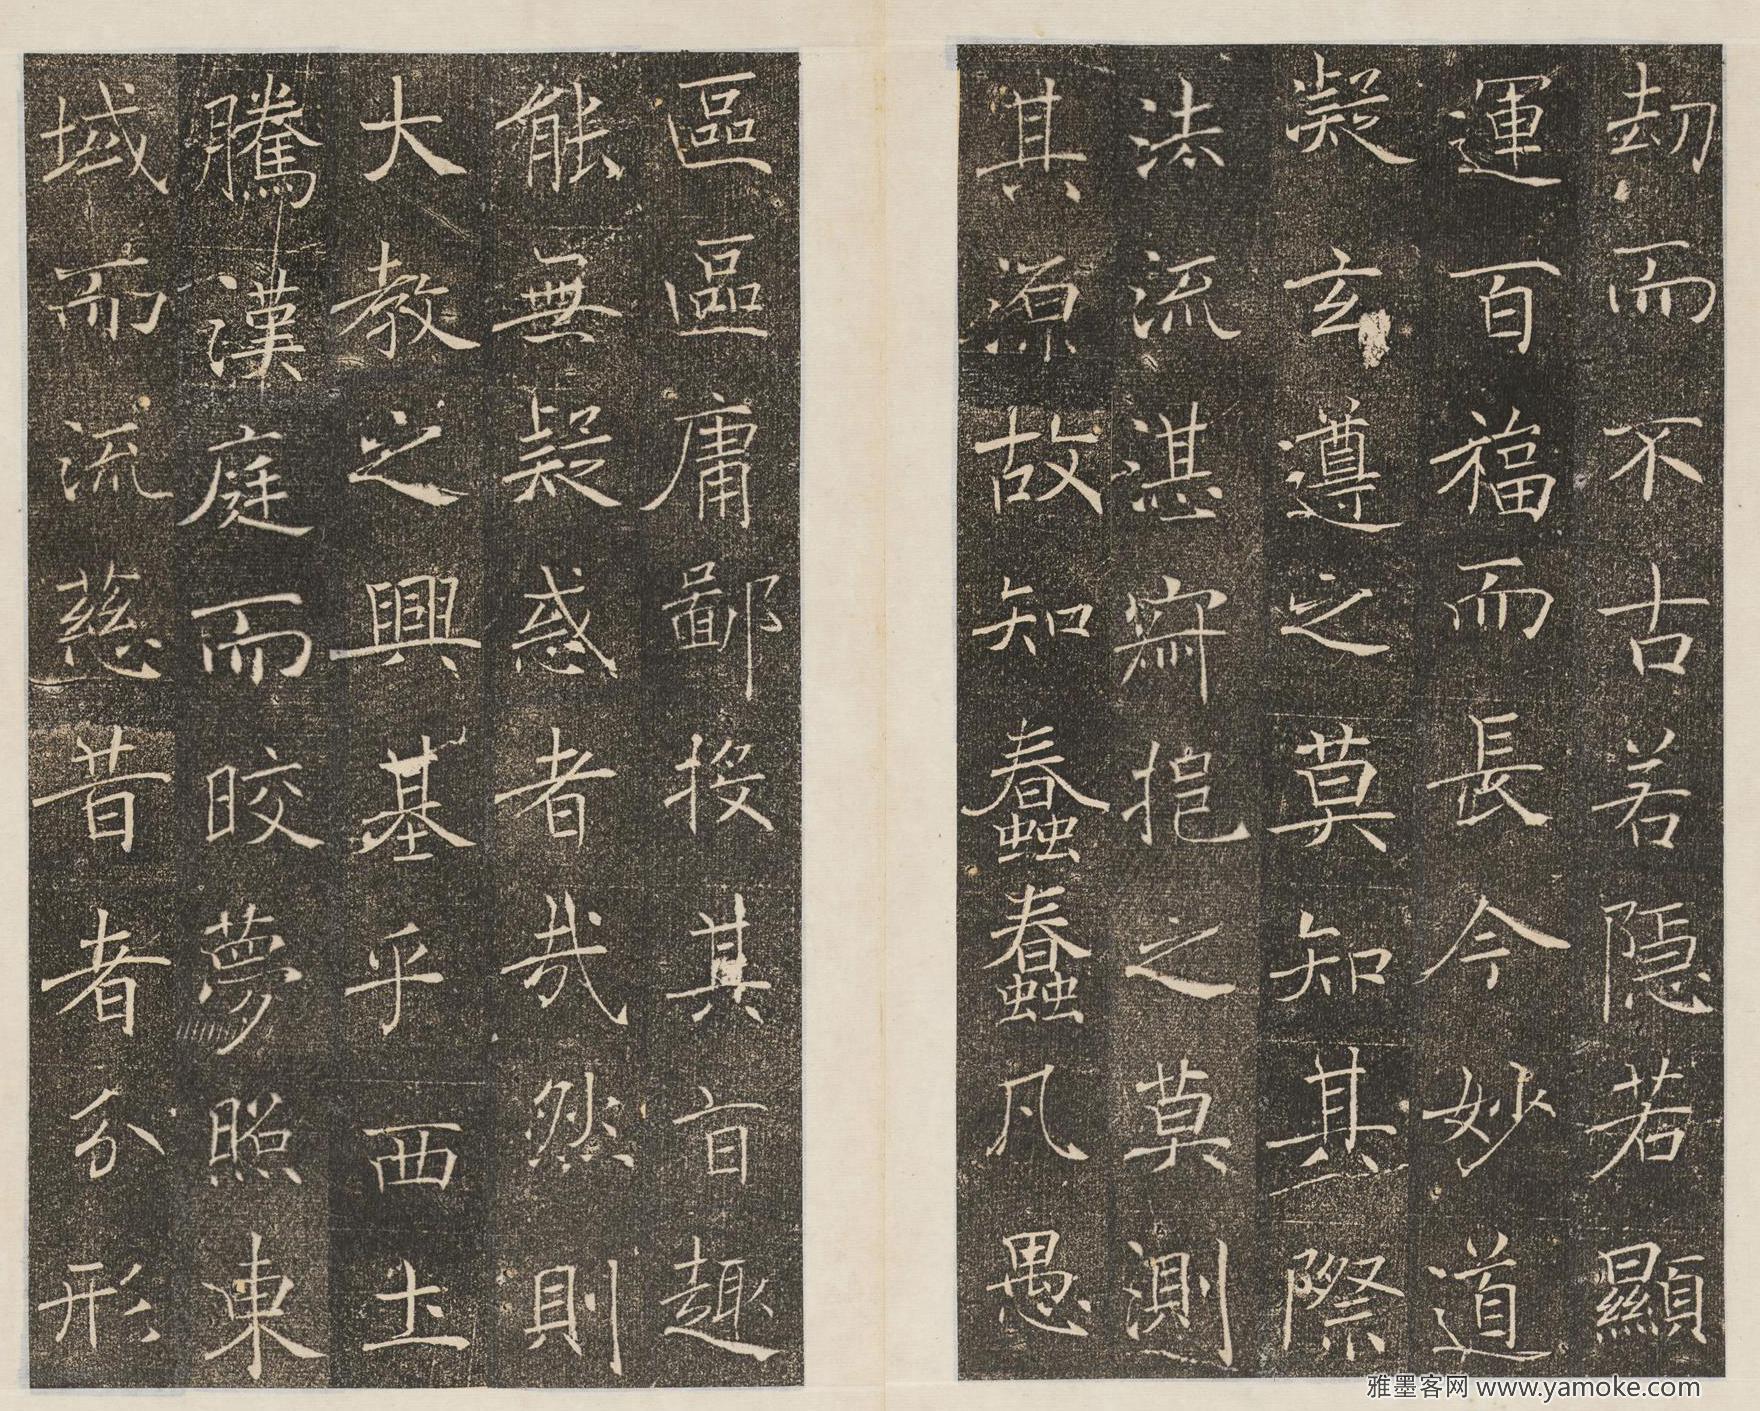 劫而不古若隱若顯
運百福而長今妙道
凝玄遵之莫知其際
法流湛寂挹之莫測
其源故知蠢蠢凡愚
區區庸鄙投其旨趣
能無疑惑者哉然則
大教之興基乎西土
騰漢庭而皎夢照東
域而流慈昔者分形
雅墨客网 www.yamoke.com